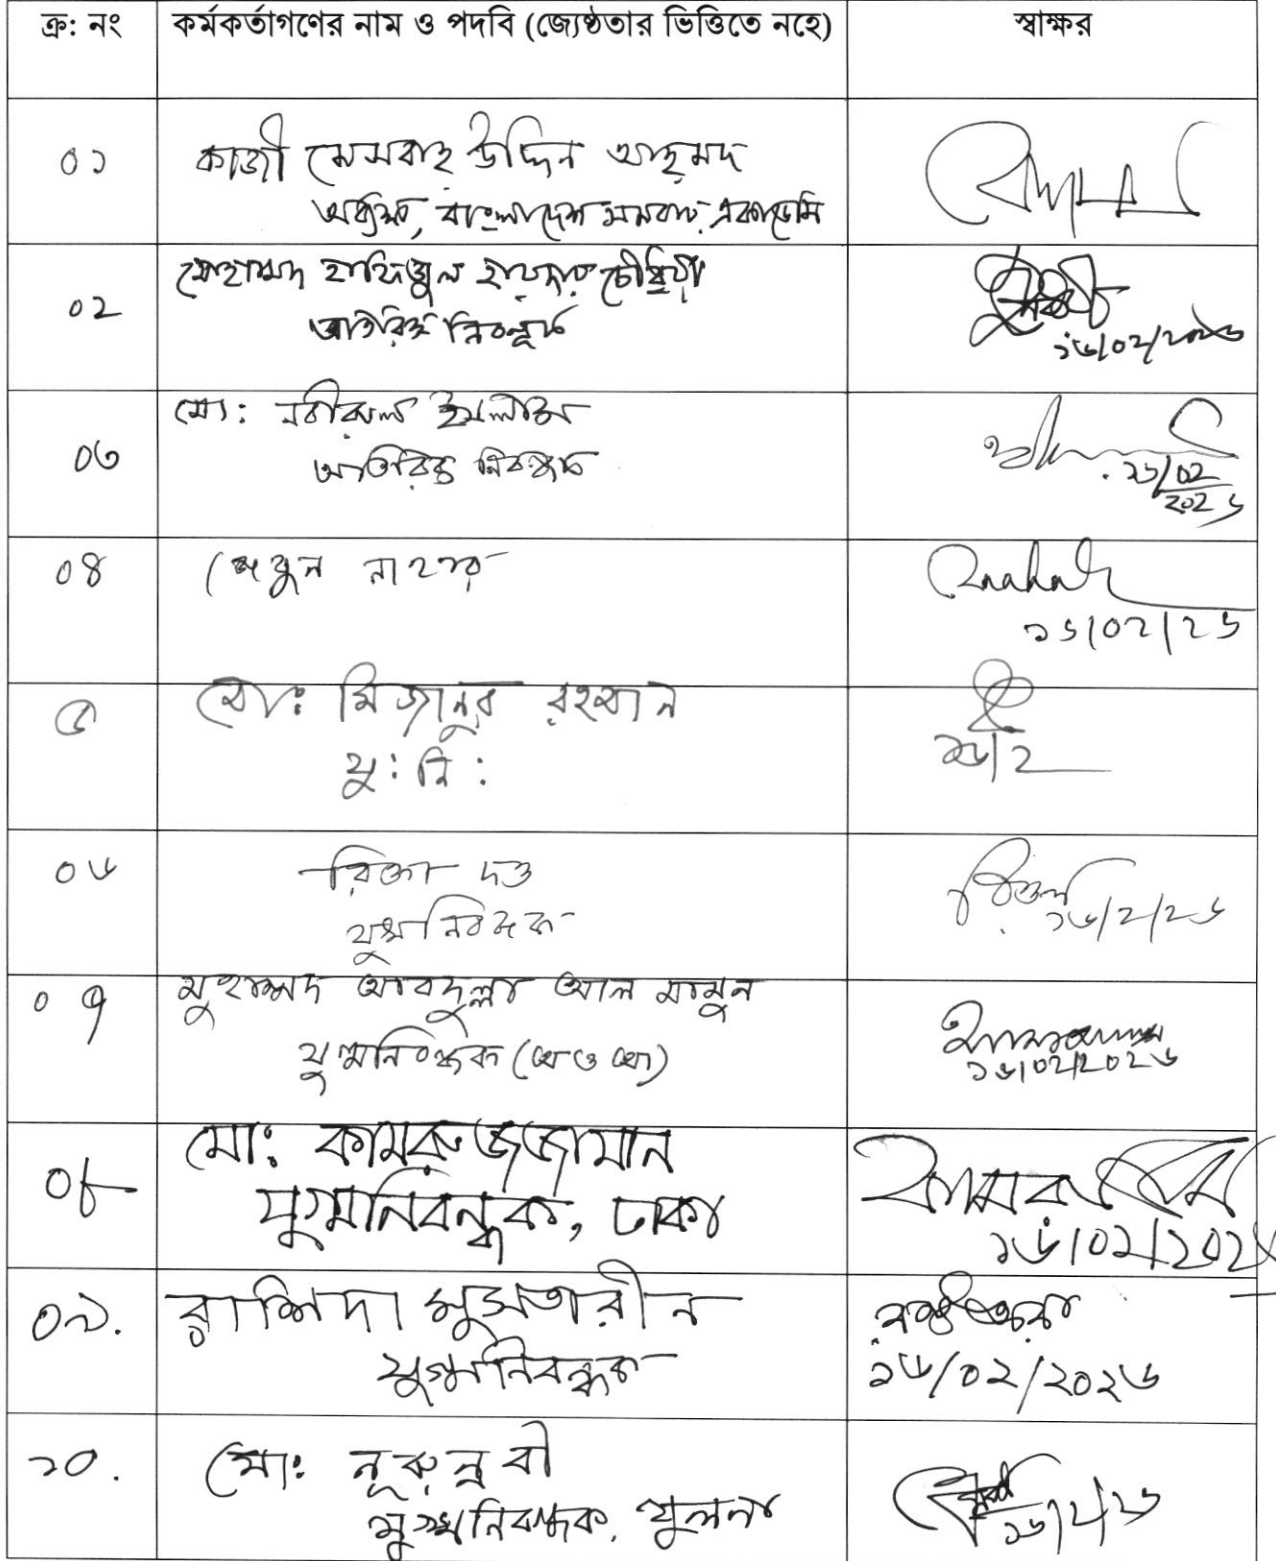 ক্র: নং কর্মকর্তাগণের নাম ও পদবি (জ্যেষ্ঠতার ভিত্তিতে নহে) স্বাক্ষর
০১ কাজী মেসবাহ উদ্দিন আহমদ
অধ্যক্ষ, বাংলাদেশ সমবায় একাডেমি
০২ মোহাম্মদ হাফিজুল হায়দার চৌধুরী
অতিরিক্ত নিবন্ধক
১৬/০২/২০২৬
০৩ মো: নবীরুল ইসলাম
অতিরিক্ত নিবন্ধক
১৬/০২
২০২৬
০৪ জেবুন নাহার
১৬/০২/২৬
৫ মোঃ মিজানুর রহমান
যু: নি:
১৬/২
০৬ রিক্তা দত্ত
যুগ্মনিবন্ধক
১৬/২/২৬
০৭ মুহাম্মদ আবদুল্লা আল মামুন
যুগ্মনিবন্ধক
১৬/০২/২০২৬
০৮ মোঃ কামরুজ্জামান
যুগ্মনিবন্ধক, ঢাকা
১৬/০২/২০২৬
০৯. রাশিদা মুসতারীন
যুগ্মনিবন্ধক
১৬/০২/২০২৬
১০. মোঃ নূরুন্নবী
যুগ্মনিবন্ধক, খুলনা
১৬/২/২৬